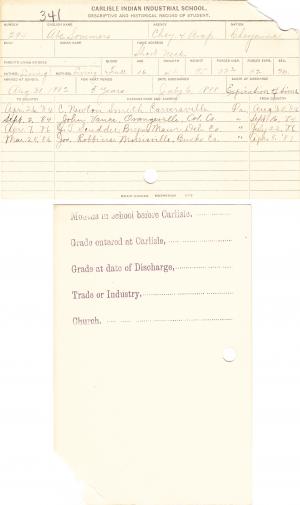 341
CARLISLE INDIAN INDUSTRIAL SCHOOL.
DESCRIPTIVE AND HISTORICAL RECORD OF STUDENT.
NUMBER ENGLISH NAME AGENCY NATION
Abe Sommers Chey & Arap Cheyenne
BAND INDIAN NAME HOME ADDRESS
Short Neck
PARENTS LIVING OR DEAD BLOOD AGE HEIGHT WEIGHT FORCED INSP. FORCED EXPR. SEX
FATHER Living MOTHER Living Full 16 M.
ARRIVED AT SCHOOL FOR WHAT PERIOD DATE DISCHARGED CAUSE OF DISCHARGE
Aug 31 1882 5 Years July 6, 1888 Expiration of time
TO COUNTRY PATRONS NAME AND ADDRESS FROM COUNTRY
Apr. 26 '84 C. Newton Smith Carversville Pa. Aug 30 '84
Sept. 2, '84 John Vance, Orangeville, Col. Co. " Sept 16, '84
Apr. 7, '86 Scudder, Bryn Mawr, Del. Co. " July 22, '86
Mar. 25, '86 Jos. Robbins Morrisville, Bucks Co. "
Months in School before Carlisle,
Grade entered at Carlisle,
Grade at date of Discharge,
Trade or Industry,
Church,